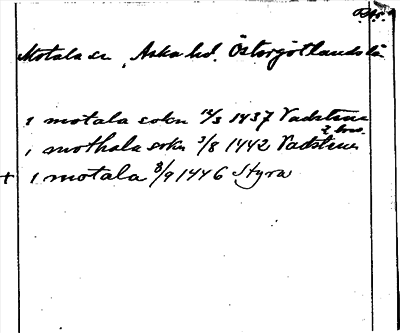 Motala sn, Aska hd. Östergötlands län
i motala sokn 12/3 1437 Vadstena
2 brev.
i mothala sokn 3/8 1442 Vadstena
+ i motala 8/9 1446 Styra